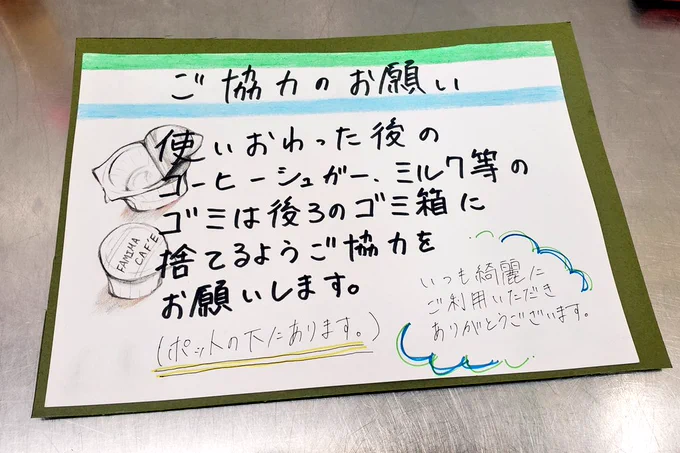 ご協力のお願い
使いおわった後の
コーヒーシュガー、ミルク等の
ゴミは後ろのゴミ箱に
捨てるようご協力を
お願いします。
(ポットの下にあります。)
FAMIMA
CAFÉ
いつも綺麗に
ご利用いただき
ありがとうございます。